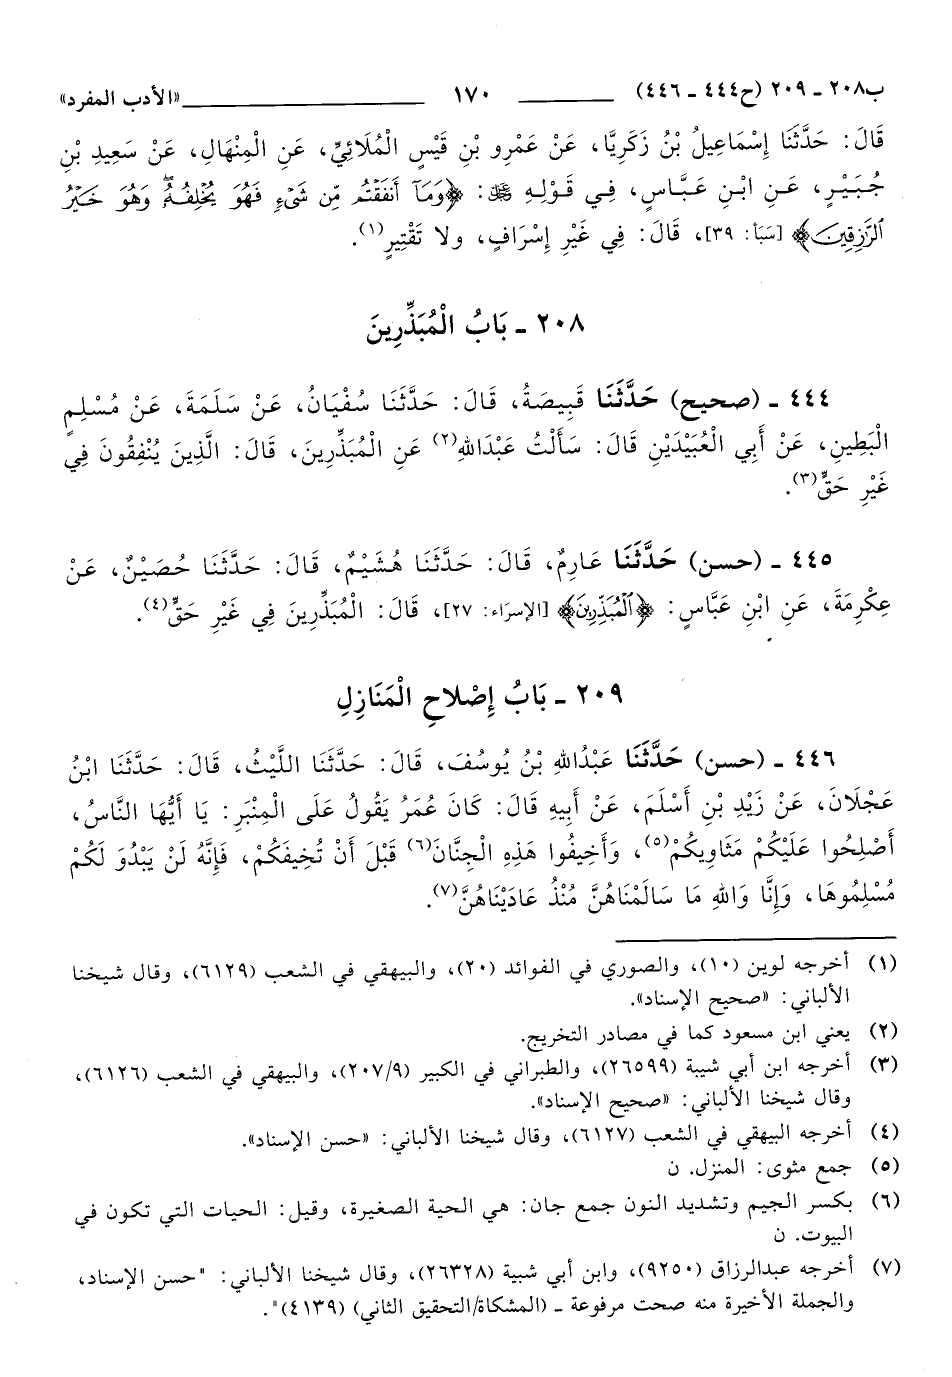 ب٢٠٨ ـ ٢٠٩ (ح٤٤٤ ـ ٤٤٦) ١٧٠ «الأدب المفرد»
قَالَ: حَدَّثَنَا إِسْمَاعِيلُ بْنُ زَكَرِيَّا، عَنْ عَمْرِو بْنِ قَيْسٍ الْمُلَائِيِّ، عَنِ الْمِنْهَالِ، عَنْ سَعِيدِ بْنِ
جُبَيْرٍ، عَنِ ابْنِ عَبَّاسٍ، فِي قَوْلِهِ ﷻ: ﴿وَمَآ أَنفَقْتُم مِّن شَىْءٍ فَهُوَ يُخْلِفُهُۥ وَهُوَ خَيْرُ
ٱلرَّٰزِقِينَ﴾ [سَبَأ: ٣٩]، قَالَ: فِي غَيْرِ إِسْرَافٍ، ولا تَقْتِيرٍ(١).
٢٠٨ ـ بَابُ الْمُبَذِّرِينَ
٤٤٤ ـ (صحيح) حَدَّثَنَا قَبِيصَةُ، قَالَ: حَدَّثَنَا سُفْيَانُ، عَنْ سَلَمَةَ، عَنْ مُسْلِمٍ
الْبَطِينِ، عَنْ أَبِي الْعُبَيْدَيْنِ قَالَ: سَأَلْتُ عَبْدَاللهِ(٢) عَنِ الْمُبَذِّرِينَ، قَالَ: الَّذِينَ يُنْفِقُونَ فِي
غَيْرِ حَقٍّ(٣).
٤٤٥ ـ (حسن) حَدَّثَنَا عَارِمٌ، قَالَ: حَدَّثَنَا هُشَيْمٌ، قَالَ: حَدَّثَنَا حُصَيْنٌ، عَنْ
عِكْرِمَةَ، عَنِ ابْنِ عَبَّاسٍ: ﴿ٱلْمُبَذِّرِينَ﴾ [الإسرَاء: ٢٧]، قَالَ: الْمُبَذِّرِينَ فِي غَيْرِ حَقٍّ(٤).
٢٠٩ ـ بَابُ إِصْلاحِ الْمَنَازِلِ
٤٤٦ ـ (حسن) حَدَّثَنَا عَبْدُاللهِ بْنُ يُوسُفَ، قَالَ: حَدَّثَنَا اللَّيْثُ، قَالَ: حَدَّثَنَا ابْنُ
عَجْلَانَ، عَنْ زَيْدِ بْنِ أَسْلَمَ، عَنْ أَبِيهِ قَالَ: كَانَ عُمَرُ يَقُولُ عَلَى الْمِنْبَرِ: يَا أَيُّهَا النَّاسُ،
أَصْلِحُوا عَلَيْكُمْ مَثَاوِيكُمْ(٥)، وَأَخِيفُوا هَذِهِ الْجِنَّانَ(٦) قَبْلَ أَنْ تُخِيفَكُمْ، فَإِنَّهُ لَنْ يَبْدُوَ لَكُمْ
مُسْلِمُوهَا، وَإِنَّا وَاللهِ مَا سَالَمْنَاهُنَّ مُنْذُ عَادَيْنَاهُنَّ(٧).
(١) أخرجه لوين (١٠)، والصوري في الفوائد (٢٠)، والبيهقي في الشعب (٦١٢٩)، وقال شيخنا
الألباني: «صحيح الإسناد».
(٢) يعني ابن مسعود كما في مصادر التخريج.
(٣) أخرجه ابن أبي شيبة (٢٦٥٩٩)، والطبراني في الكبير (٢٠٧/٩)، والبيهقي في الشعب (٦١٢٦)،
وقال شيخنا الألباني: «صحيح الإسناد».
(٤) أخرجه البيهقي في الشعب (٦١٢٧)، وقال شيخنا الألباني: «حسن الإسناد».
(٥) جمع مثوى: المنزل. ن
(٦) بكسر الجيم وتشديد النون جمع جان: هي الحية الصغيرة، وقيل: الحيات التي تكون في
البيوت. ن
(٧) أخرجه عبدالرزاق (٩٢٥٠)، وابن أبي شيبة (٢٦٣٢٨)، وقال شيخنا الألباني: "حسن الإسناد،
والجملة الأخيرة منه صحت مرفوعة ـ (المشكاة/التحقيق الثاني) (٤١٣٩)".